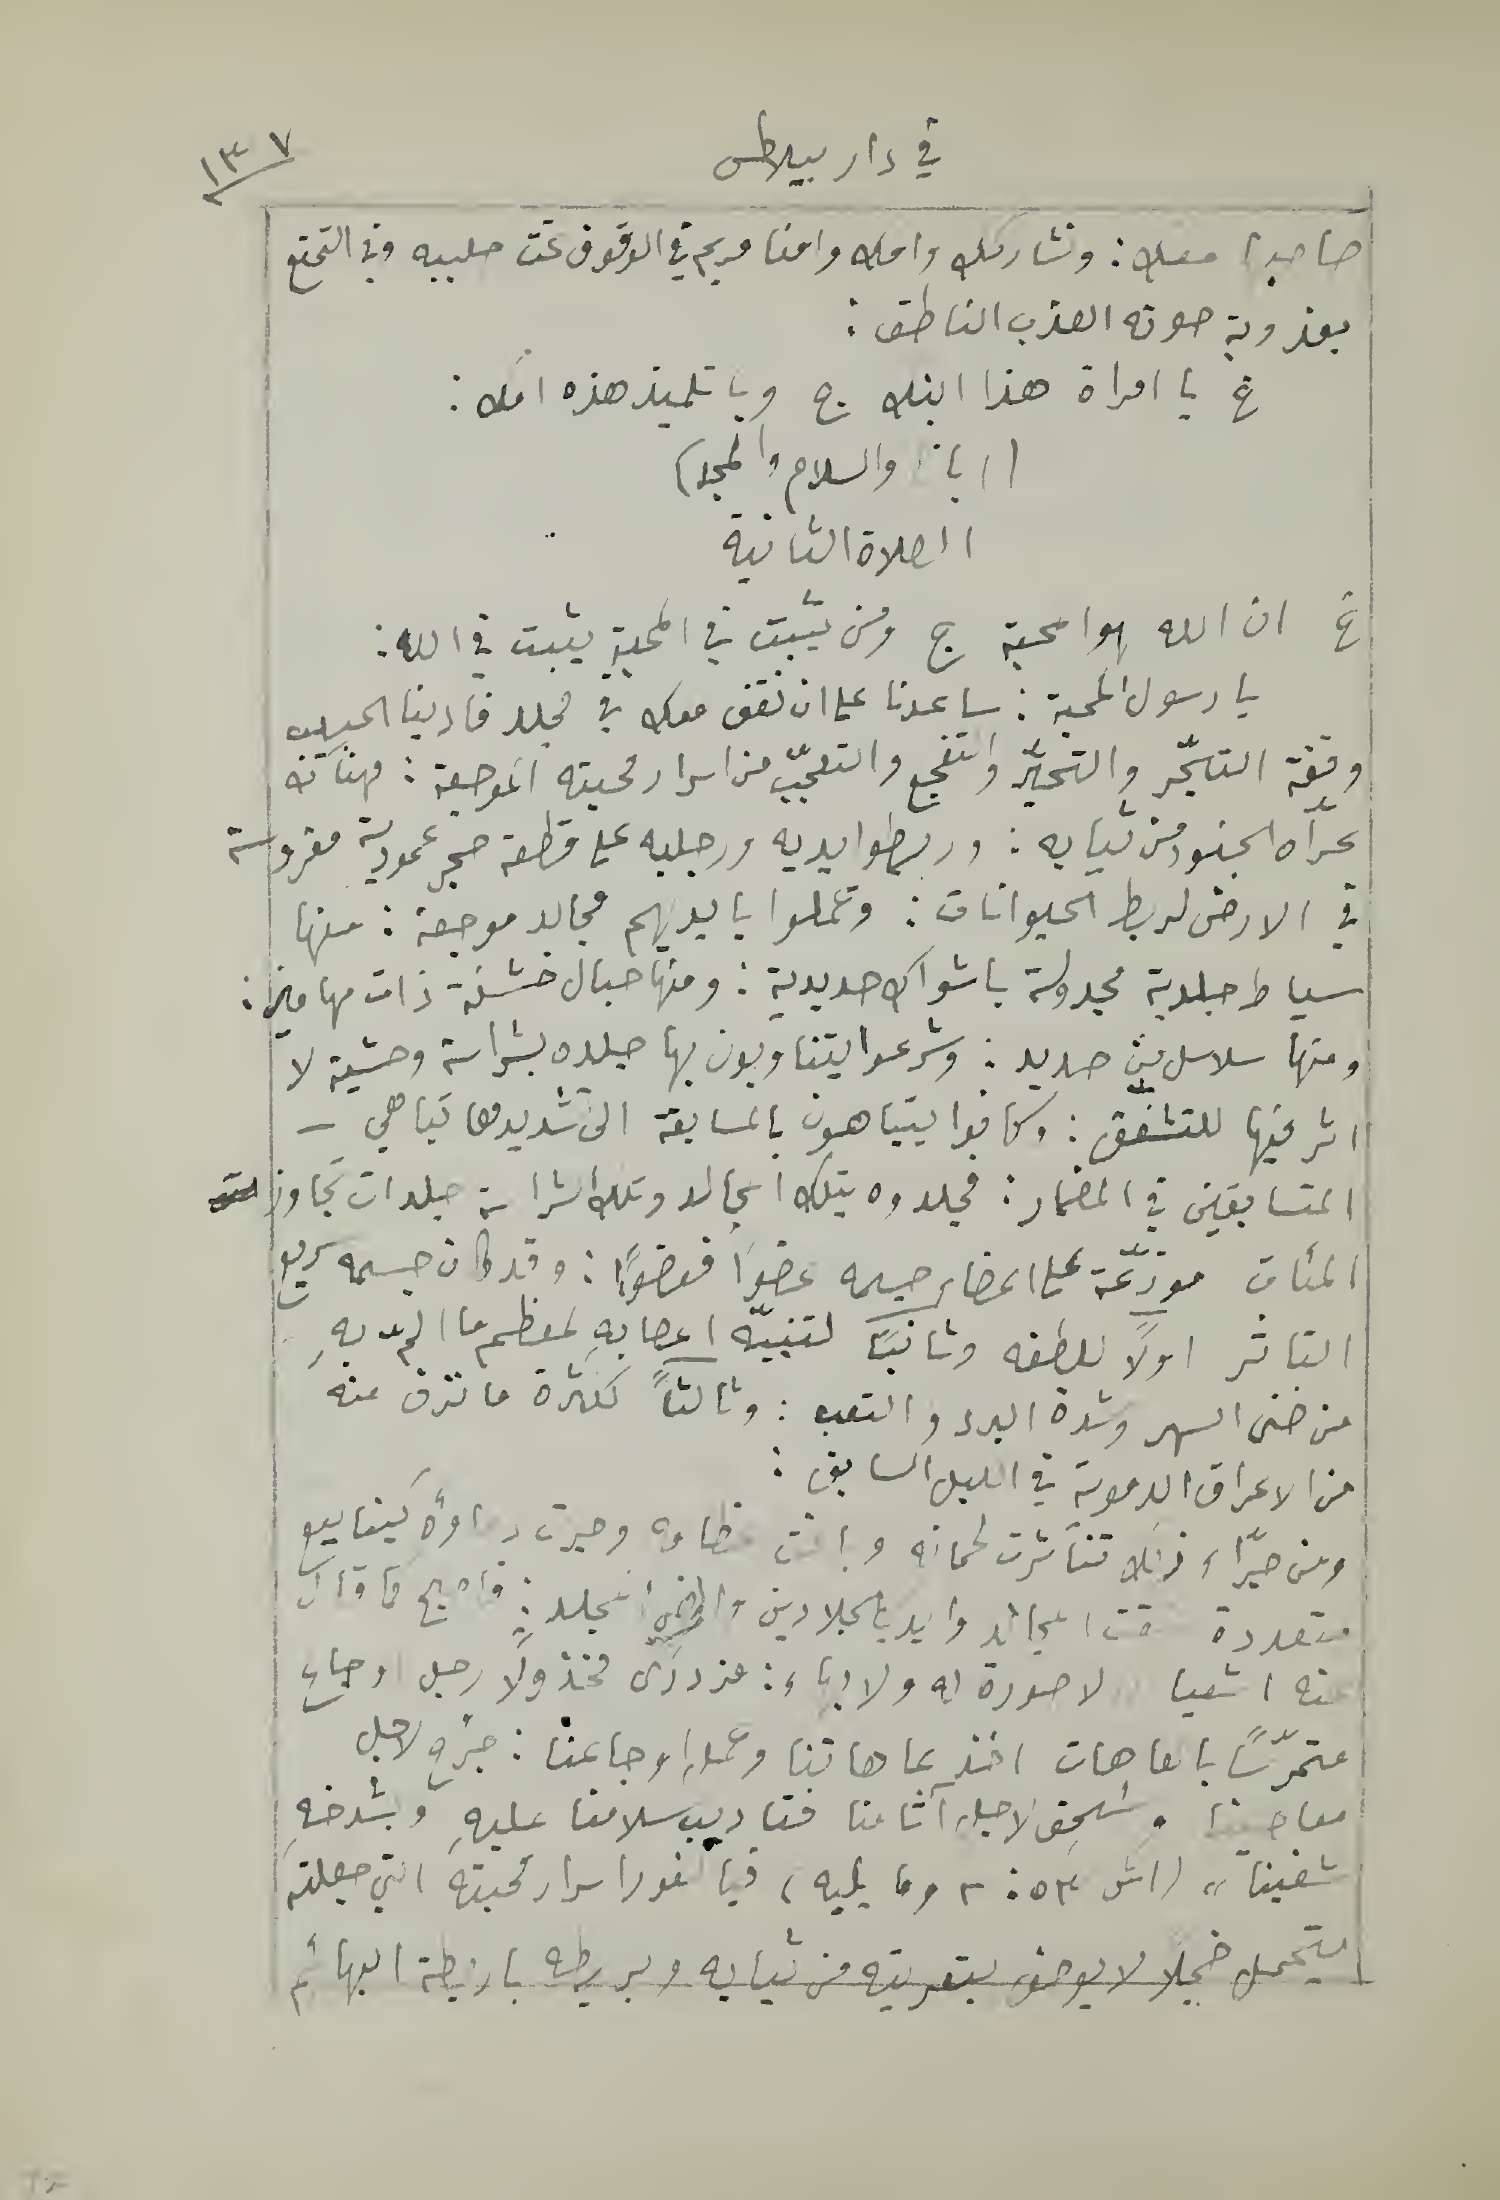 في دار بيلاطس
١٣٧
صاحبا معك : ونشاركك وامك وامنا مريم في الوقوف تحت صليبه وفي التمتع
بعذوبة صوته العذب الناطق :
غ يا امراة هذا ابنك ج ويا تلميذ هذه امك :
(ابانا والسلام والمجد)
الصلاة الثانية
غ ان الله هو المحبة ج ومن يثبت في المحبة يثبت في الله :
يا رسول المحبة : ساعدنا على ان نقف معك في مجلد فادينا الحبيب
وقفة التأسّر والتحيّر والتفجع والتعجّب من اسرار محبته الموجعة : فهناك قد
عرّاه الجنود من ثيابه : وربطوا يديه ورجليه على قطعة حجر عمودية مغروسة
في الارض لربط الحيوانات : وتحملوا بايديهم مجالد موجعة : منها
سياط جلدية مجدولة باشواك حديدية : ومنها حبال خشنة ذات مهاميز :
ومنها سلاسل من حديد : وشرعوا يتناوبون بها جلده بشراسة وحشية لا
اثر فيها للتشفق : وكانوا يتباهون بالمسابقة الى تشديدها تباهي –
المتسابقين في المضمار : فجلدوه بتلك المجالد وتلك الشراسة جلدات تجاوز
المئات موزّعة على اعضاء جسمه عضوًا فعضوًا : وقد كان جسمه سريع
التاثر اولًا للطفه وثانيًا لتنبّه اعصابهِ لمعظم ما المّ بهِ
من ضنى السهر وشدة البرد والتعب : وثالثاً لكثرة ما نزف منه
من الاعراق الدموية في الليل السابق :
ومن جرّاء ذلك تناثرت لحمانه وبانت عظامه وجرت دماؤه كينابيع
متعددة تحت المجالد وايدي الجلادين وارض المجلد : فاصبح كما قال
عنه اشعيا " لا صورة له ولا بهاء : مزدرًى مخذولًا رجل اوجاع
متمرّسًا بالعاهات اخذ عاهاتنا وحمل اوجاعنا : جُرح لاجل
معاصينا وسُحق لاجل آثامنا فتاديب سلامنا عليهِ وبشدخهِ
شفينا " (اش ٥٣ : ٢ وما يليه) فيا لغور اسرار محبتهِ التي جعلتهُ
يتحمل خجلًا لا يوصف بتعريته من ثيابه وبربطه باربطة البهائم